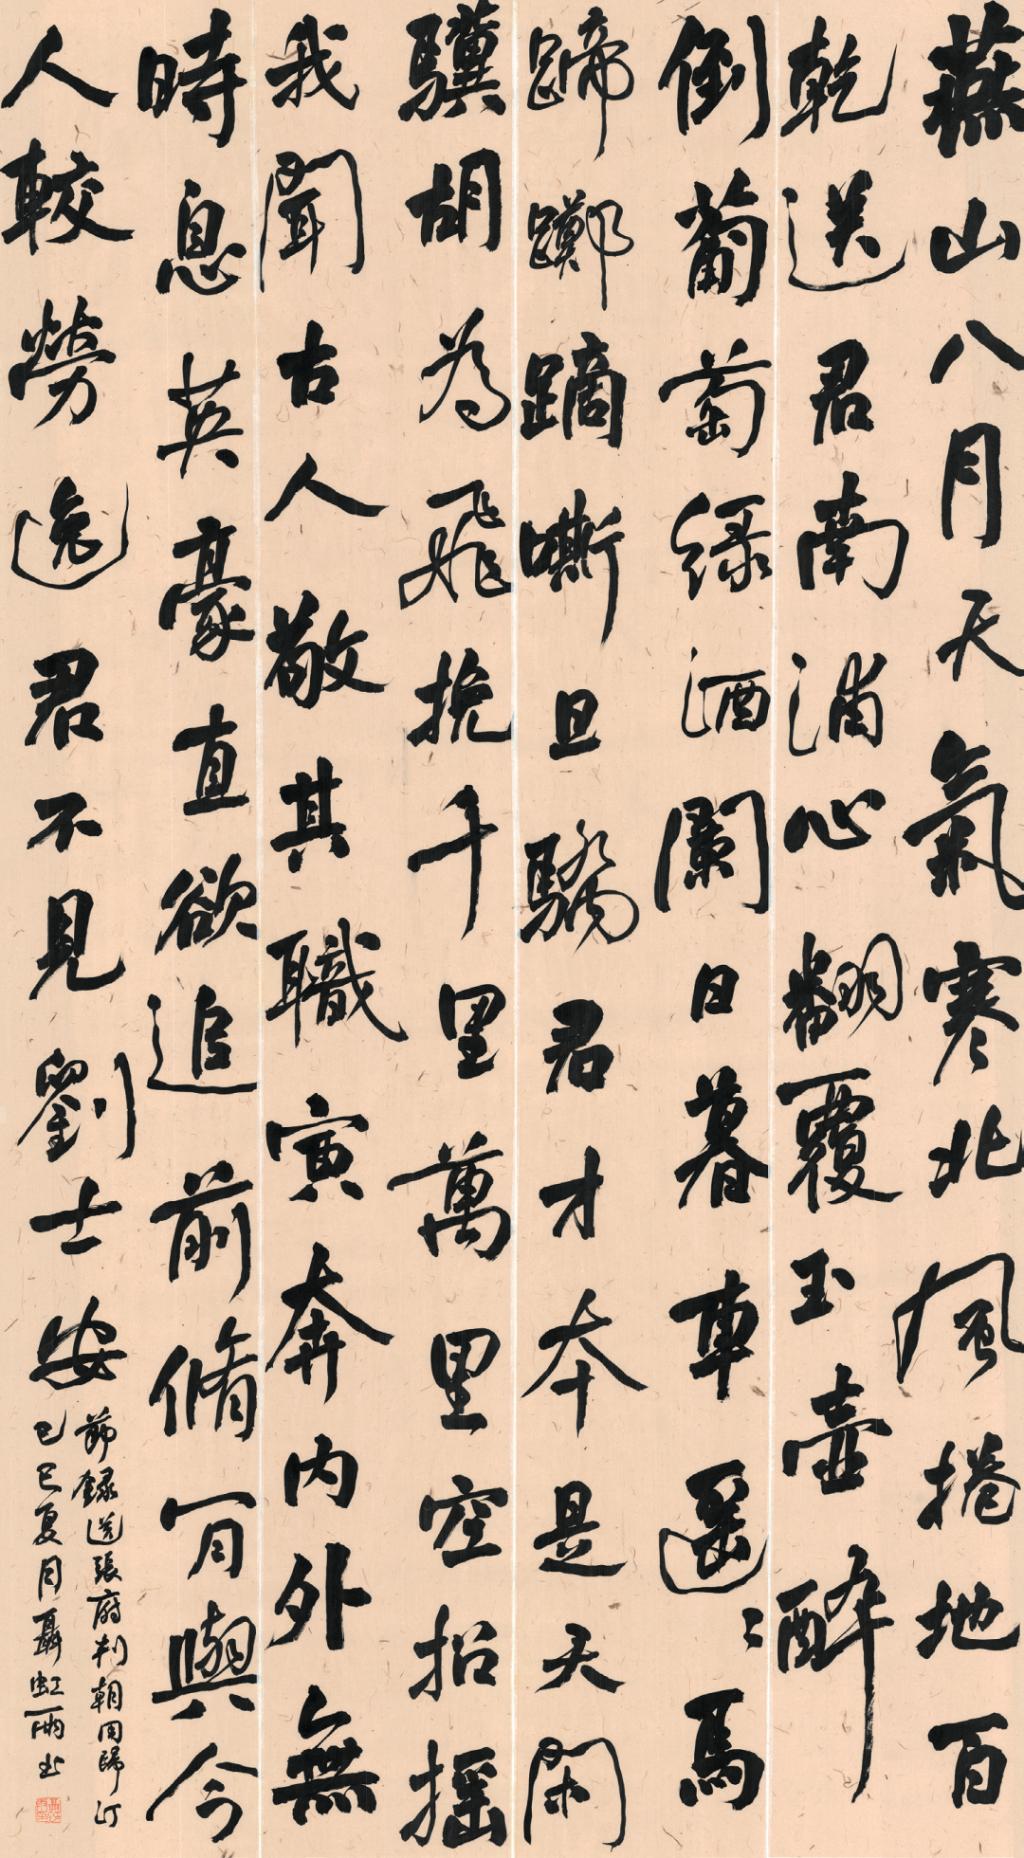 燕山八月天氣寒北風捲地百
乾送君南浦心翻覆玉壺醉
倒葡萄緑酒闌日暮車遥〻馬
蹄躑蹢嘶且驕君才本是天閑
驥胡為飛挽千里萬里空招摇
我聞古人敬其職寅奔内外無
時息英豪直欲追前脩肯與今
人較勞逸君不見劉士安
節録送張府判朝用歸汀
乙巳夏月聶虹雨书